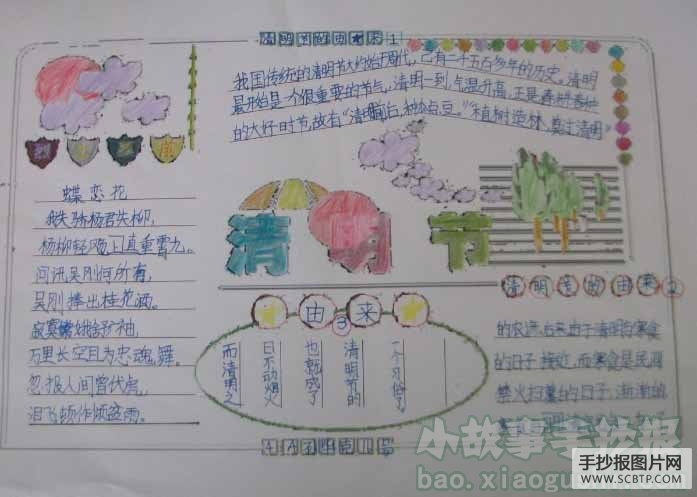 清明节的由来1
我国传统的清明节大约始于周代,已有二千五百多年的历史。清明
最开始是一个很重要的节气,清明一到,气温升高,正是春耕春种
的大好时节,故有“清明前后,种瓜点豆。”“植树造林,莫过清明”
蝶恋花
我失骄杨君失柳,
杨柳轻飏上直重霄九。
问讯吴刚何所有,
吴刚捧出桂花酒。
寂寞嫦娥舒袖,
万里长空且为忠魂舞。
忽报人间曾伏虎,
泪飞顿作倾盆雨。
清明节
清明节的由来2
的农谚。后来由于清明与寒食
的日子接近,而寒食是民间
禁火扫墓的日子,渐渐的
由来
3
而清明之
日不动烟火
也就成了
清明节的
一个习俗了。
小故事手抄报
bao.xiaogu
手抄报图片网
WWW.SCBTP.COM